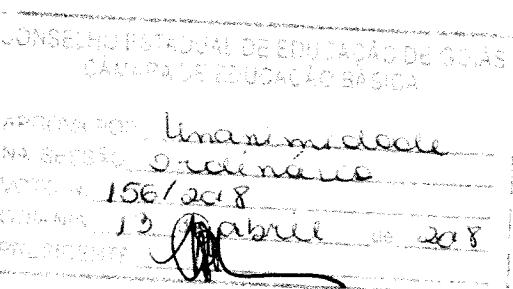 CONSELHO ESTADUAL DE EDUCAÇÃO DE GOIÁS
CÂMARA DE EDUCAÇÃO BÁSICA
APROVA POR unanimidade
NA SESSÃO ordinária
156/2018
GOIÂNIA, 13 abril de 2018
PRESIDENTE